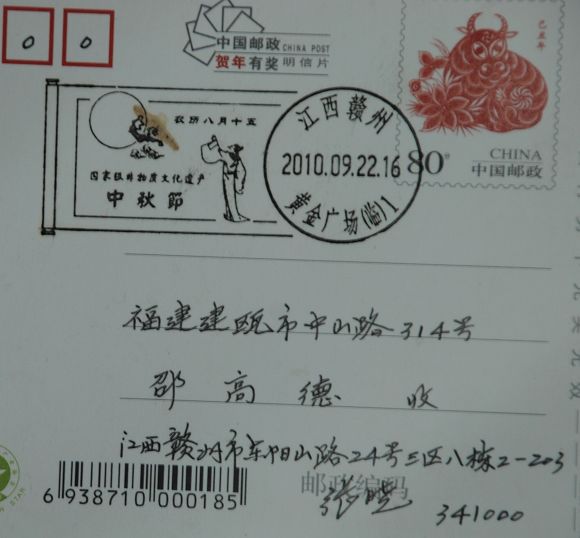 0 0
中国邮政 CHINA POST
贺年有奖 明信片
己丑年
农历八月十五
国家级非物质文化遗产
中秋節
江西赣州
2010.09.22.16
黄金广场(临)1
80分
CHINA
中国邮政
福建建瓯市中山路314号
邵高德 收
江西赣州市东阳山路24号三区八栋2-203
邮政编码
张
341000
6 938710 000185